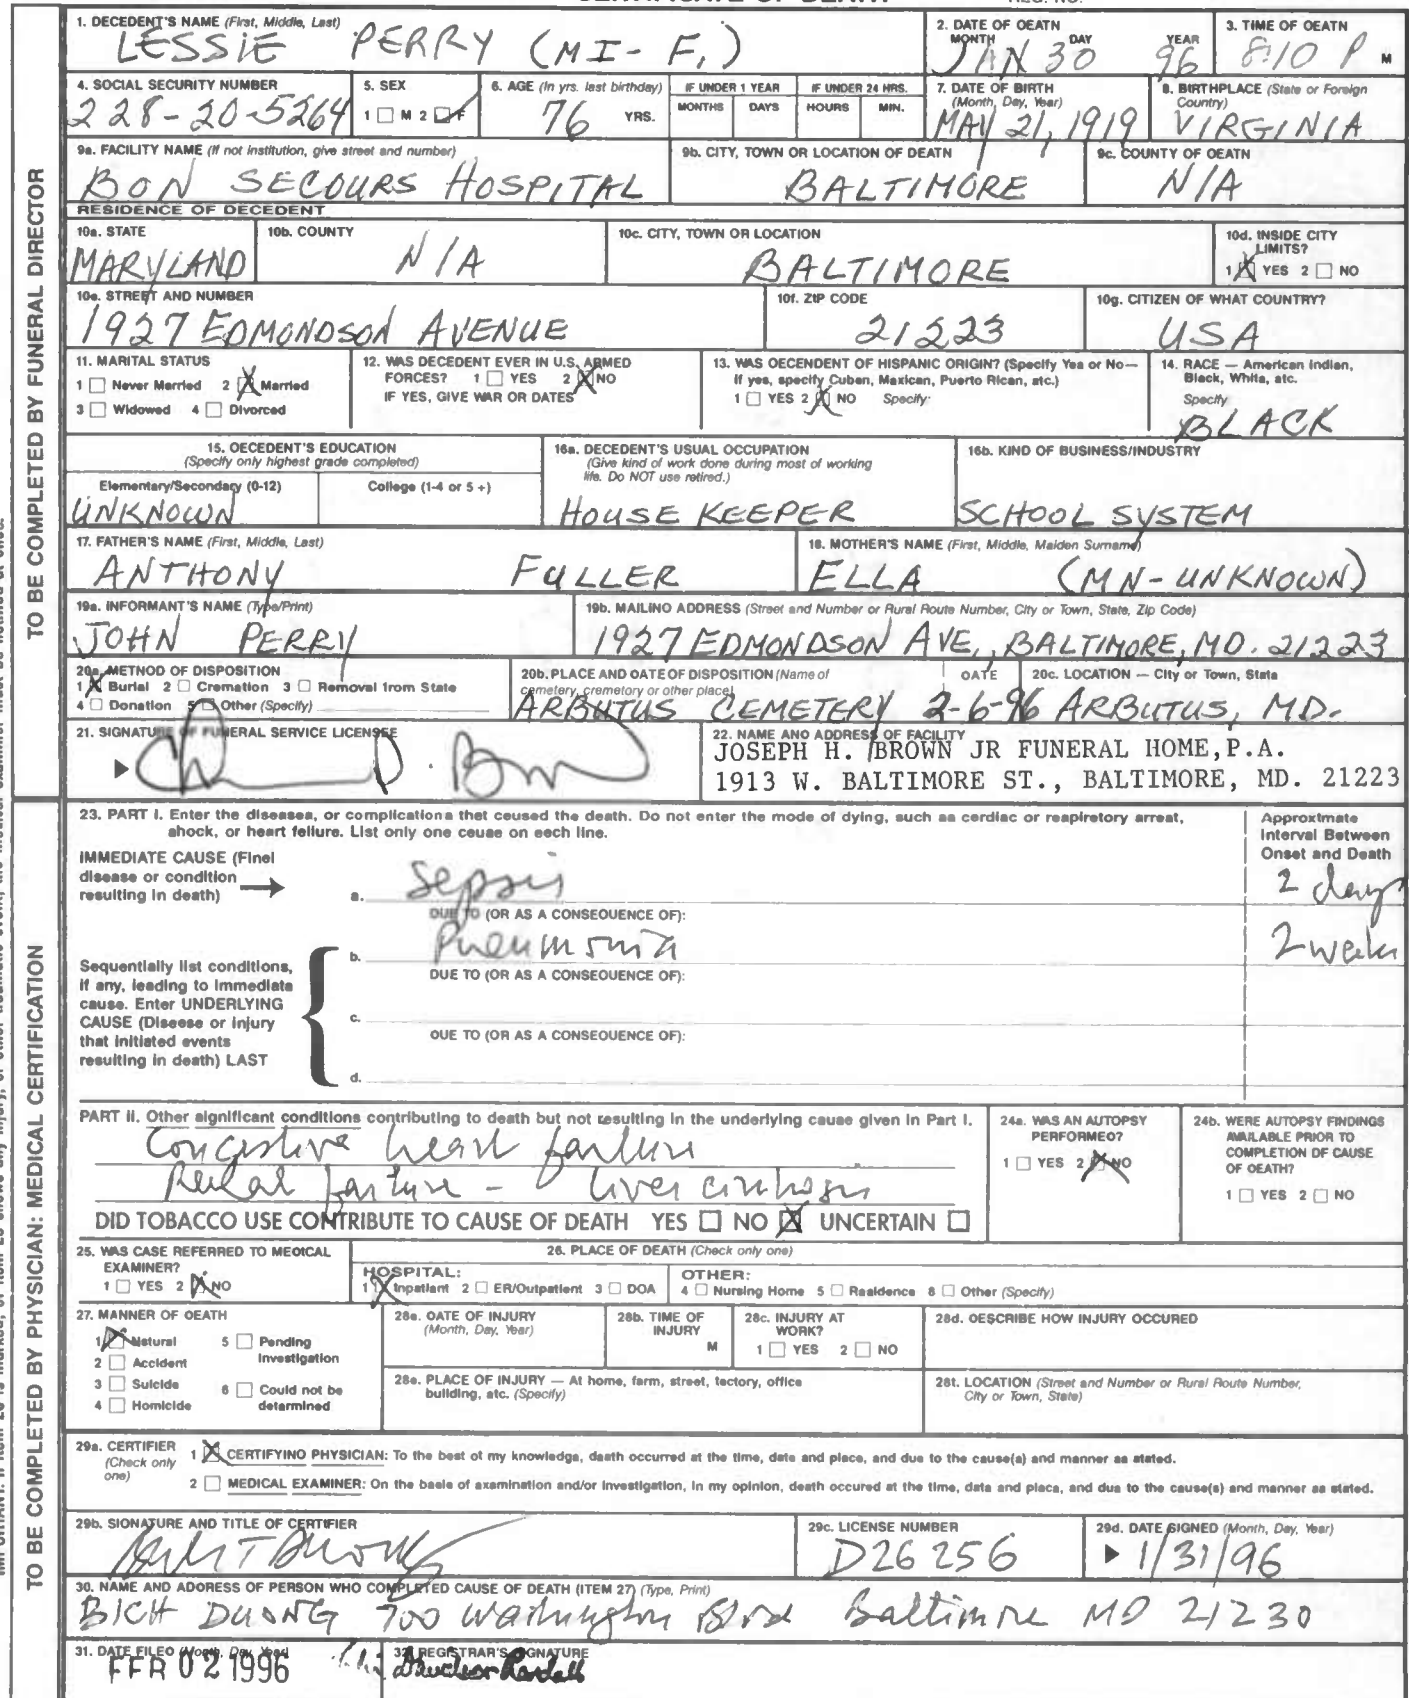 1. DECEDENT'S NAME (First, Middle, Last)
LESSIE PERRY (MI- F.)
2. DATE OF OEATN
MONTH DAY YEAR
JAN 30 96
3. TIME OF OEATN
8:10 P M
4. SOCIAL SECURITY NUMBER
228-20-5264
5. SEX
1 M 2 F
6. AGE (In yrs. last birthday)
76 YRS.
IF UNDER 1 YEAR
MONTHS DAYS
IF UNDER 24 HRS.
HOURS MIN.
7. DATE OF BIRTH
(Month, Day, Year)
MAY 21, 1919
8. BIRTHPLACE (State or Foreign
Country)
VIRGINIA
9a. FACILITY NAME (If not institution, give street and number)
BON SECOURS HOSPITAL
9b. CITY, TOWN OR LOCATION OF DEATH
BALTIMORE
9c. COUNTY OF OEATN
N/A
RESIDENCE OF DECEDENT
10a. STATE
MARYLAND
10b. COUNTY
N/A
10c. CITY, TOWN OR LOCATION
BALTIMORE
10d. INSIDE CITY
LIMITS?
1 X YES 2 NO
10e. STREET AND NUMBER
1927 EDMONDSON AVENUE
10f. ZIP CODE
21223
10g. CITIZEN OF WHAT COUNTRY?
USA
11. MARITAL STATUS
1 Never Married 2 X Married
3 Widowed 4 Divorced
12. WAS DECEDENT EVER IN U.S. ARMED
FORCES? 1 YES 2 X NO
IF YES, GIVE WAR OR DATES
13. WAS OECENDENT OF HISPANIC ORIGIN? (Specify Yes or No—
If yes, specify Cuban, Mexican, Puerto Rican, etc.)
1 YES 2 X NO Specify:
14. RACE — American Indian,
Black, White, etc.
Specify
BLACK
15. OECEDENT'S EDUCATION
(Specify only highest grade completed)
Elementary/Secondary (0-12) College (1-4 or 5 +)
UNKNOWN
16a. DECEDENT'S USUAL OCCUPATION
(Give kind of work done during most of working
life. Do NOT use retired.)
HOUSE KEEPER
16b. KIND OF BUSINESS/INDUSTRY
SCHOOL SYSTEM
17. FATHER'S NAME (First, Middle, Last)
ANTHONY FULLER
18. MOTHER'S NAME (First, Middle, Maiden Surname)
ELLA (MN-UNKNOWN)
19a. INFORMANT'S NAME (Type/Print)
JOHN PERRY
19b. MAILINO ADDRESS (Street and Number or Rural Route Number, City or Town, State, Zip Code)
1927 EDMONDSON AVE., BALTIMORE, MD. 21223
20a. METNOD OF DISPOSITION
1 X Burial 2 Cremation 3 Removal from State
4 Donation 5 Other (Specify)
20b. PLACE AND OATE OF DISPOSITION (Name of
cemetery, crematory or other place)
OATE
ARBUTUS CEMETERY 2-6-96
20c. LOCATION — City or Town, State
ARBUTUS, MD.
21. SIGNATURE OF FUNERAL SERVICE LICENSEE
22. NAME ANO ADDRESS OF FACILITY
JOSEPH H. BROWN JR FUNERAL HOME,P.A.
1913 W. BALTIMORE ST., BALTIMORE, MD. 21223
TO BE COMPLETED BY FUNERAL DIRECTOR
23. PART I. Enter the diseases, or complications that caused the death. Do not enter the mode of dying, such as cardiac or respiretory arreat,
ahock, or heart feilure. List only one ceuae on each line.
Approxtmate
Interval Between
Onset and Death
IMMEDIATE CAUSE (Finel
disease or condition
resulting in death)
a. Sepsis 2 days
DUE TO (OR AS A CONSEOUENCE OF):
b. Pneumonia 2 weeks
DUE TO (OR AS A CONSEOUENCE OF):
c.
OUE TO (OR AS A CONSEOUENCE OF):
d.
Sequentially list conditions,
if any, leading to immediate
cause. Enter UNDERLYING
CAUSE (Diseese or injury
that initiated events
resulting in death) LAST
PART II. Other significant conditions contributing to death but not resulting in the underlying cause given in Part I.
Congestive heart failure
Renal failure - liver cirrhosis
DID TOBACCO USE CONTRIBUTE TO CAUSE OF DEATH YES NO X UNCERTAIN
24a. WAS AN AUTOPSY
PERFORMEO?
1 YES 2 X NO
24b. WERE AUTOPSY FINDINGS
AVAILABLE PRIOR TO
COMPLETION OF CAUSE
OF OEATH?
1 YES 2 NO
25. WAS CASE REFERRED TO MEOICAL
EXAMINER?
1 YES 2 X NO
26. PLACE OF DEATH (Check only one)
HOSPITAL:
1 X Inpatient 2 ER/Outpatient 3 DOA
OTHER:
4 Nursing Home 5 Reaidence 8 Other (Specify)
27. MANNER OF OEATH
1 X Natural 5 Pending
Investigation
2 Accident
3 Suicide 6 Could not be
determined
4 Homicide
28a. OATE OF INJURY
(Month, Day, Year)
28b. TIME OF
INJURY
M
28c. INJURY AT
WORK?
1 YES 2 NO
28d. OESCRIBE HOW INJURY OCCURED
28e. PLACE OF INJURY — At home, farm, street, tactory, office
building, atc. (Specify)
28t. LOCATION (Street and Number or Rural Route Number,
City or Town, State)
29a. CERTIFIER
(Check only
one)
1 X CERTIFYINO PHYSICIAN: To the best ot my knowledge, death occurred at the time, date and place, and due to the cause(a) and manner aa atated.
2 MEDICAL EXAMINER: On the basie of axamination and/or Investigation, in my opinion, death occured at the time, data and placa, and dua to the cause(s) and manner aa stated.
29b. SIONATURE AND TITLE OF CERTIFIER
29c. LICENSE NUMBER
D26256
29d. DATE SIGNED (Month, Day, Year)
1/31/96
30. NAME AND ADORESS OF PERSON WHO COMPLETED CAUSE OF DEATH (ITEM 27) (Type, Print)
BICH DUONG 700 Washington Blvd Baltimore MD 21230
31. DATE FILEO (Month, Day, Year)
FEB 02 1996
32. REGISTRAR'S SIGNATURE
TO BE COMPLETED BY PHYSICIAN: MEDICAL CERTIFICATION